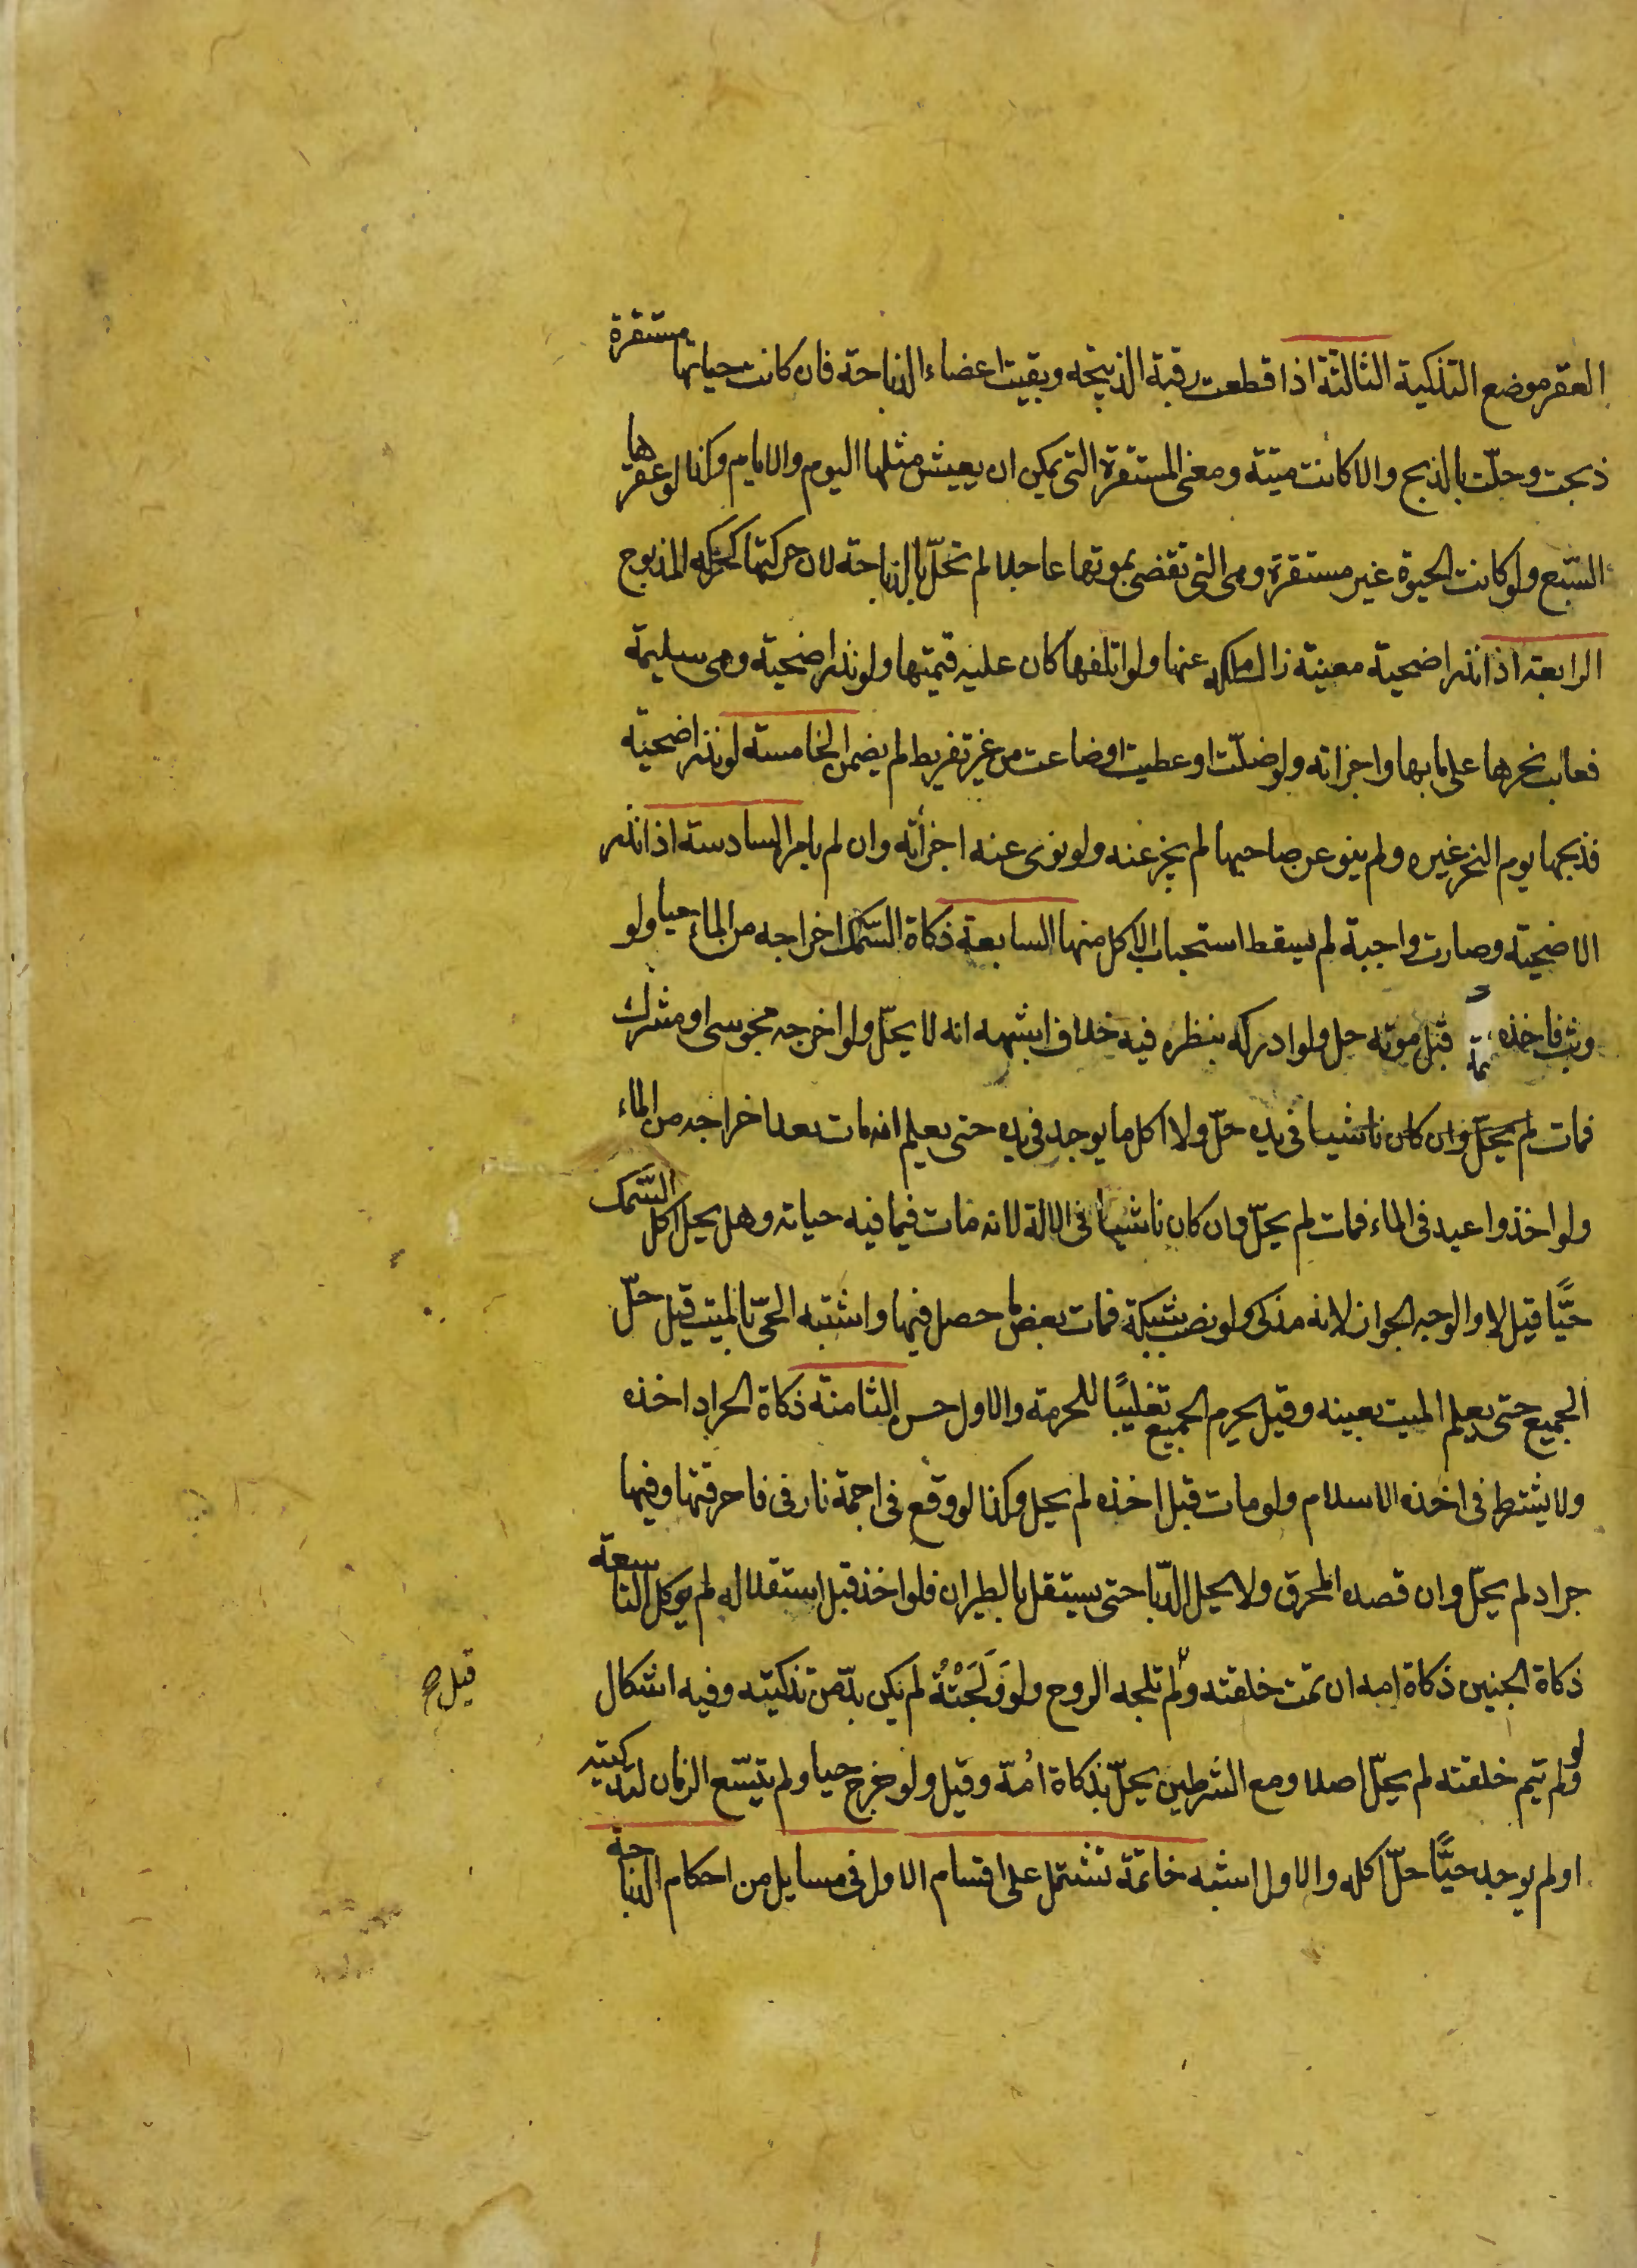 العقر موضع التذكية الثالثة اذا قطعت رقبة الذبيحة وبقيت اعضاء الذباحة فان كانت حياتها مستقرة
ذبحت وحلّت بالذبح والا كانت ميتة ومعنى المستقرة التى يمكن ان يعيش مثلها اليوم والايام وكذا لو عقرها
السّبع ولو كانت الحيوة غير مستقرة وهى التى تقضى بموتها عاجلا لم تحلّ بالذباحة لان حركتها كحركة المذبوح
الرابعة اذا نذر اضحية معينة زال ملكه عنها ولو اتلفها كان عليه قيمتها ولو نذر اضحية وهى سليمة
فعابت نحرها على ما بها واجزاته ولو ضلّت او عطبت او ضاعت من غير تفريط لم يضمن الخامسة لو نذر اضحية
فذبحها يوم النحر غيره ولم ينو عن صاحبها لم يجز عنه ولو نوى عنه اجزأته وان لم يامر السادسة اذا نذر
الاضحية وصارت واجبة لم يسقط استحباب الاكل منها السابعة ذكاة السّمك اخراجه من الماء حيا ولو
وثب فاخذه قبل موته حل ولو ادركه بنظره فيه خلاف اشبهه انه لا يحلّ ولو اخرجه مجوسى او مشرك
فمات لم يحلّ وان كان ناشبا فى يده حلّ ولا اكل ما يوجد فى يده حتى يعلم انه مات بعد اخراجه من الماء
ولو اخذ واعيد فى الماء فمات لم يحلّ وان كان ناشبا فى الالة لانه مات فيما فيه حياته وهل يحل اكل السّمك
حيًّا قيل لا والوجه الجواز لانه مذكى ولو نصب شبكة فمات بعض ما حصل فيها واشتبه الحىّ بالميت قيل حلّ
الجميع حتى يعلم الميت بعينه وقيل يحرم الجميع تغليبًا للحرمة والاول حسن الثامنة ذكاة الجراد اخذه
ولا يشترط فى اخذه الاسلام ولو مات قبل اخذه لم يحل وكذا لو وقع فى اجمة نار فى فاحرقتها وفيها
جراد لم يحلّ وان قصده المحرق ولا يحل الدّبا حتى يستقل بالطيران فلو اخذ قبل استقلاله لم يوكل التاسعة
ذكاة الجنين ذكاة امه ان تمت خلقته ولم تلجه الروح ولو وَلَجَتْهُ لم يكن بدّ من تذكيته وفيه اشكال
قيل
ولو لم تيم خلقته لم يحلّ اصلا ومع الشرطين يحلّ بذكاة امّه وقيل ولو خرج حيا ولم يتسّع الزمان لتذكيته
او لم يوجد حيًّا حلّ اكله والاول اشبه خاتمة تشتمل على اقسام الاول فى مسايل من احكام الذباحة